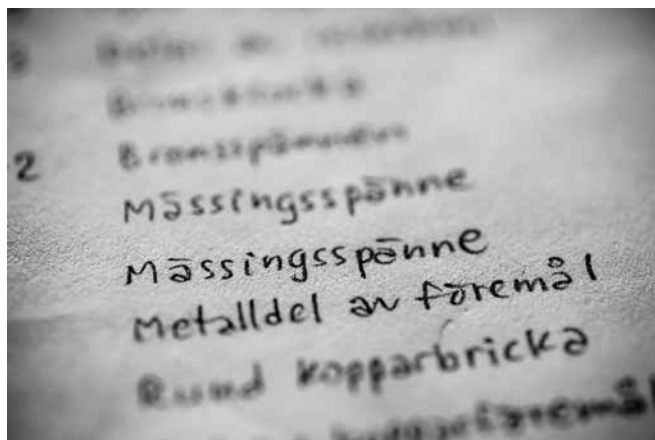 2 Bronsspännen
Mässingsspänne
Mässingsspänne
Metalldel av föremål
Rund kopparbricka
kopparföremål